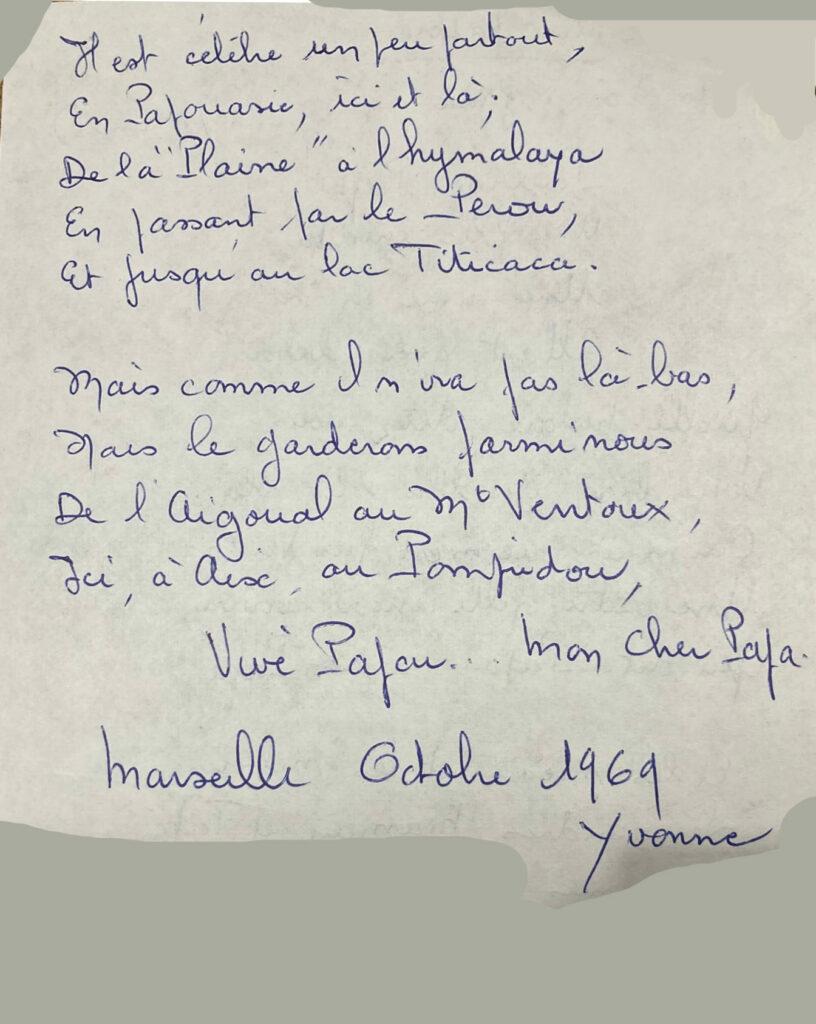 Il est célèbre un peu partout,
En Papouasie, ici et là,
De la "Plaine" à l'hymalaya
En passant par le Perou,
Et jusqu'au lac Titicaca.
Mais comme il n'ira pas là-bas,
Nous le garderons parmi nous
De l'Aigoual au Mt Ventoux,
Ici, à Aix, au Pompidou,
Vive Papou... mon cher Papa.
Marseille Octobre 1969
Yvonne